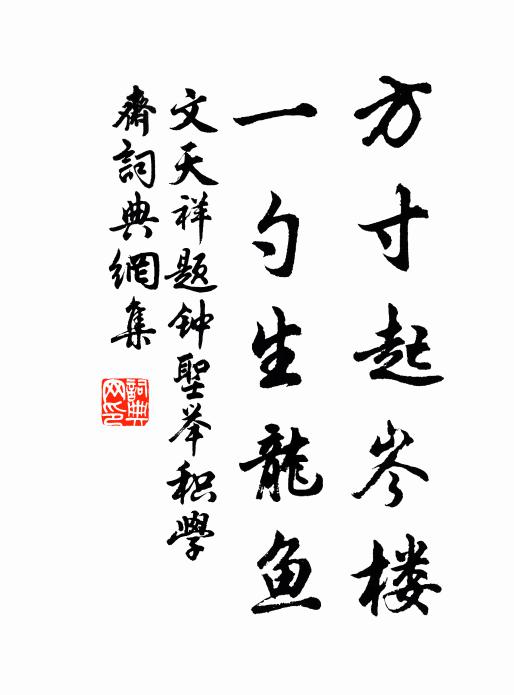 方寸起岑楼
一勺生龍鱼
文天祥题钟聖举积學
齋詞典網集
詞典
网印